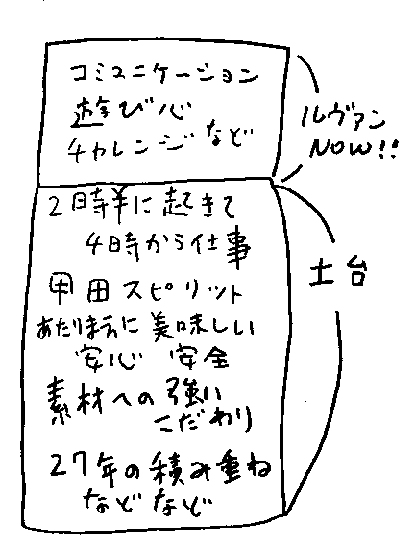 コミュニケーション
遊び心
チャレンジなど
ルヴァン
NOW!!
2時半に起きて
4時から仕事
甲田スピリット
あたりまえに美味しい
安心 安全
素材への強い
こだわり
27年の積み重ね
などなど
土台